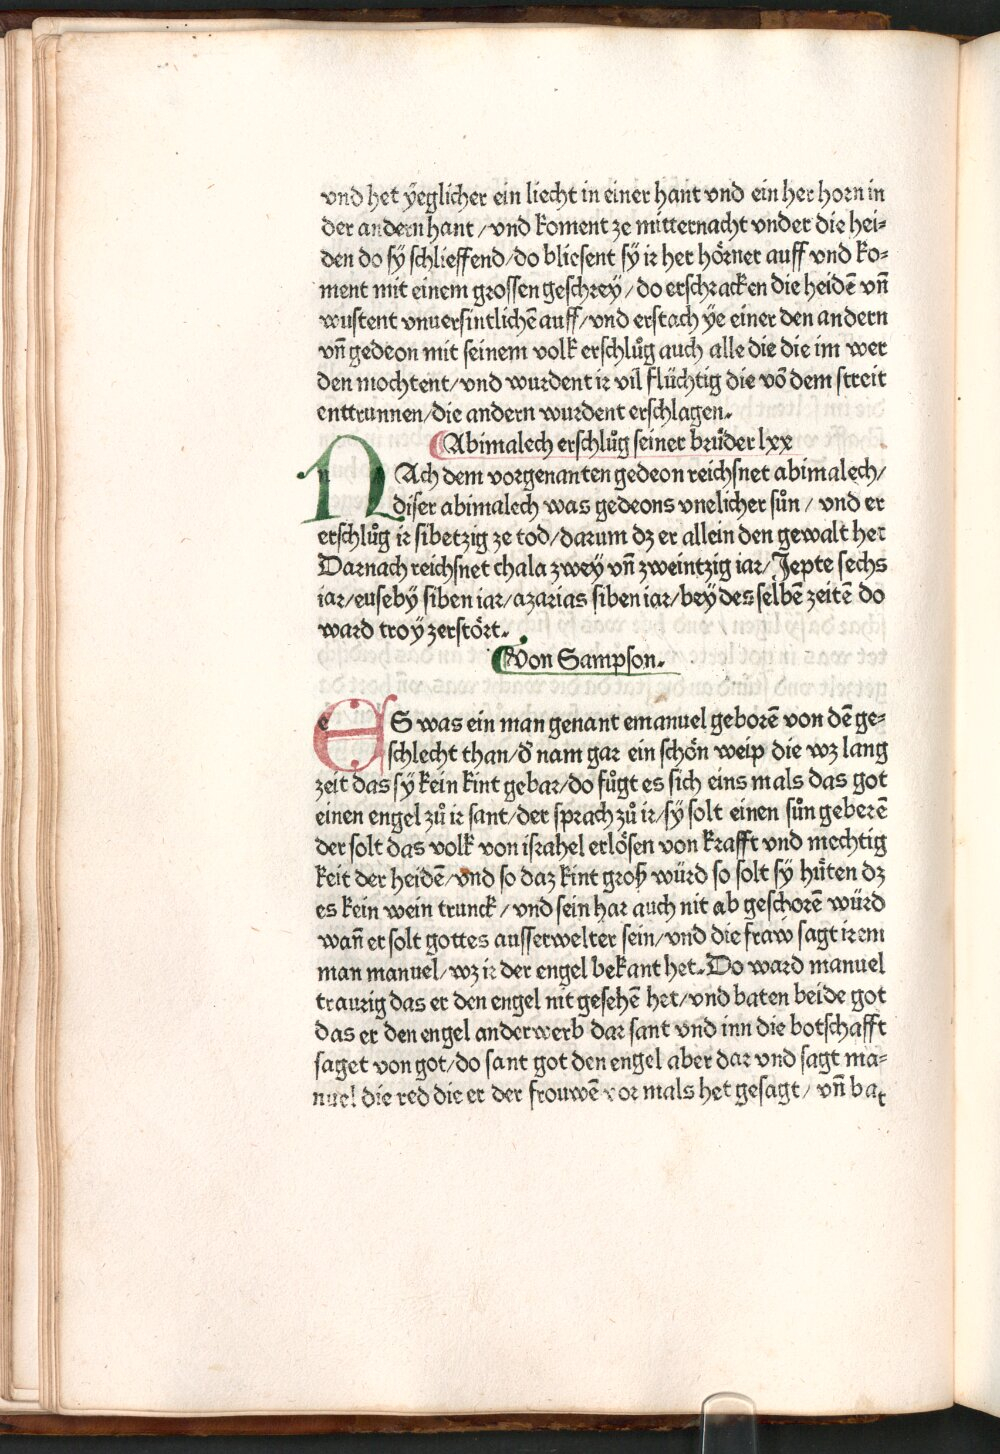 vnd het ÿeglicher ein liecht in einer hant vnd ein her horn in
der andern hant / vnd koment ze mitternacht vnder die hei⸗
den do sÿ schlieffend / do bliesent sÿ ir her hoͤrner auff vnd ko⸗
ment mit einem grossen geschreÿ / do erschracken die heidē vn̄
wustent vnuersintlichē auff / vnd erstach ÿe einer den andern
vn̄ gedeon mit seinem volk erschlůg auch alle die die im wer
den mochtent / vnd wurdent ir vil fluͤchtig die võ dem streit
enttrunnen / die andern wurdent erschlagen.
Abimalech erschlůg seiner bruͤder lxx
NAch dem vorgenanten gedeon reichsnet abimalech /
diser abimalech was gedeons vnelicher sůn / vnd er
erschlůg ir sibetzig ze tod / darum dz er allein den gewalt het
Darnach reichsnet thala zweÿ vn̄ zweintzig iar / Jepte sechs
iar / eusebÿ siben iar / azarias siben iar / beÿ des selbē zeitē do
ward troÿ zerstoͤrt.
Von Sampson.
ES was ein man genant emanuel geborē von dē ge⸗
schlecht than / d̄ nam gar ein schoͤn weip die wz lang
zeit das sÿ kein kint gebar / do fůgt es sich eins mals das got
einen engel zů ir sant / der sprach zů ir / sÿ solt einen sůn geberē
der solt das volk von israhel erloͤsen von krafft vnd mechtig
keit der heidē / vnd so daz kint groß würd so solt sÿ huͤten dz
es kein wein trunck / vnd sein har auch nit ab geschorē würd
wan̄ er solt gottes ausserwelter sein / vnd die fraw sagt irem
man manuel / wz ir der engel bekant het. Do ward manuel
traurig das er den engel nit gesehē het / vnd baten beide got
das er den engel anderwerb dar sant vnd inn die botschafft
saget von got / do sant got den engel aber dar vnd sagt ma⸗
nuel die red die er der frouwē vor mals het gesagt / vn̄ bat